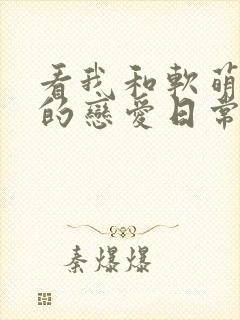 看我和軟萌
的戀愛日常
秦爆爆